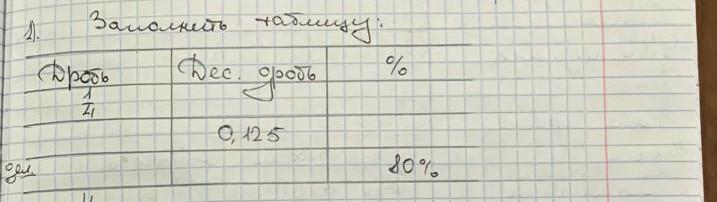 1). Заполнить таблицу:
Дробь Дес. дробь %
1/4
0,125
80%